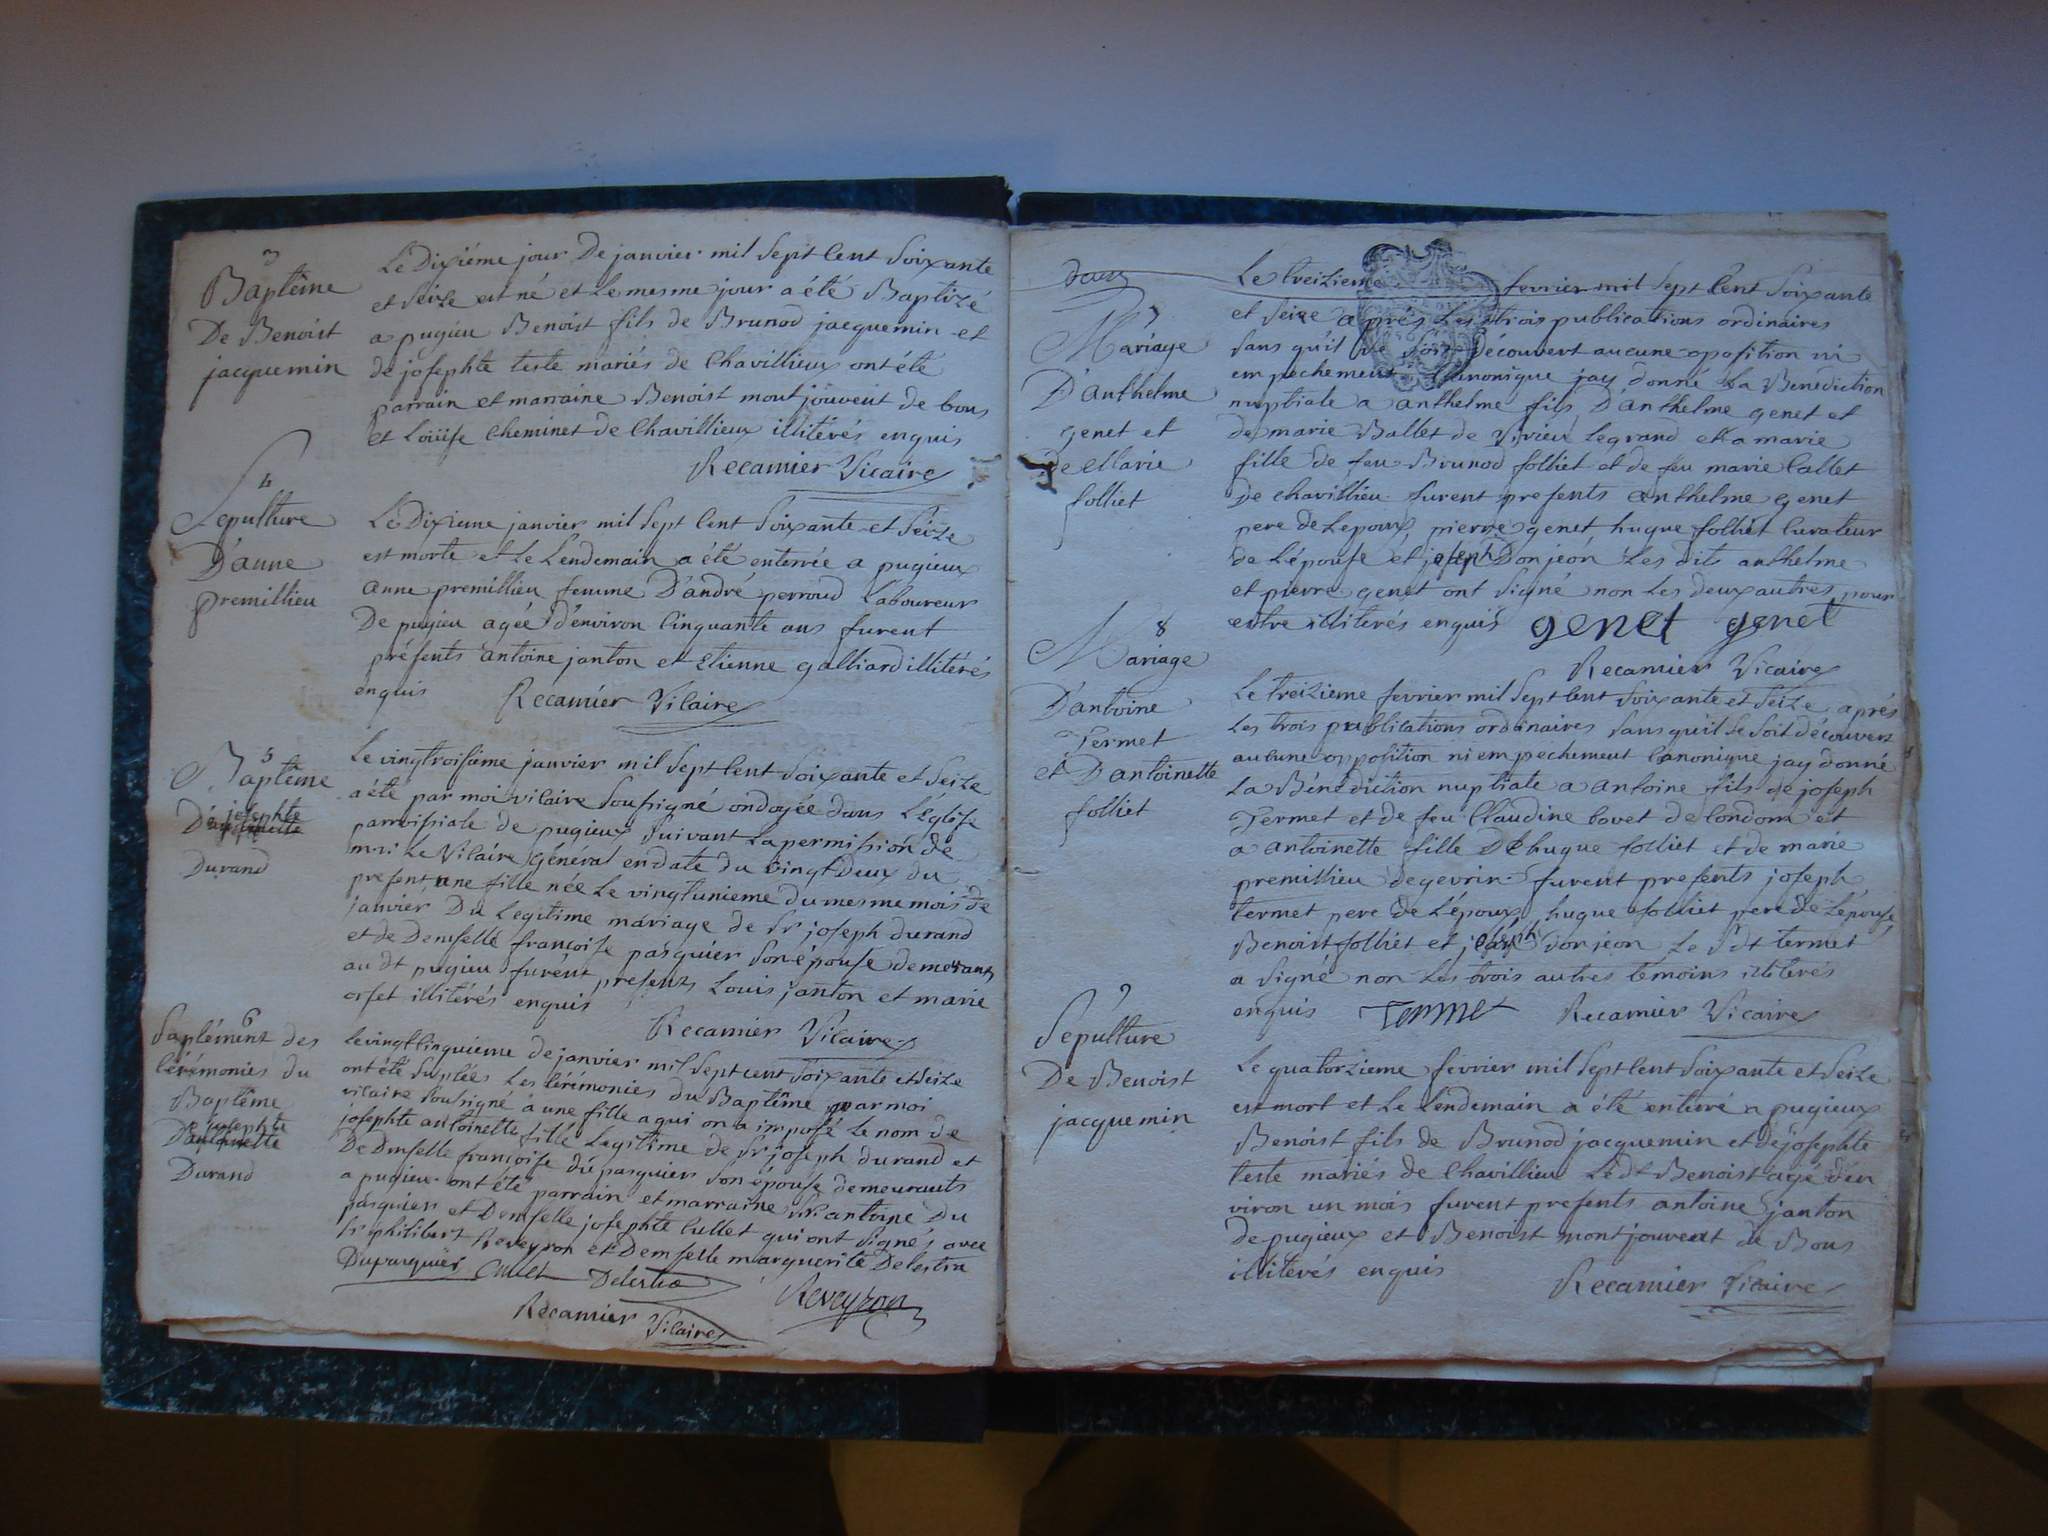 3
Baptême
De Benoist
jacquemin
Le Dixiéme jour De janvier mil sept Cent Soixante
et Seize est né et Le mesme jour a été Baptizé
a pugieu Benoist fils de Brunod jacquemin et
de josephte teste mariés de Chavillieux ont été
parrain et marraine Benoist montjouvent de bons
et Loüise Cheminet de Chavillieux illitérés enquis
Recamier Vicaire
4
Sepulture
D'anne
premillieu
Le Dixieme janvier mil Sept Cent Soixante et Seize
est morte et Le Lendemain a été enterrée a pugieux
anne premillieu femme D'andré perroud Laboureur
De pugieu agée d'environ Cinquante ans furent
présents antoine janton et Etienne galliard illitérés
enquis Recamier Vicaire
5
Baptême
De josephte
Durand
Le vingtroisiéme janvier mil Sept Cent Soixante et Seize
a été par moi vicaire Soussigné ondoyée dans L'églisse
parroissiale de pugieux suivant La permission de
Le Vicaire général en date du vingt Deux du
present, une fille née Le vingtunieme du mesme mois de
janvier Du Legitime mariage de Sr joseph durand
et de Demselle francoise pasquier son épouse demeurants
au dt pugieu furent presents Louis janton et marie
orset illitérés enquis
Recamier Vicaire
6
Suplément des
Cérémonies du
Baptême
De josephte
Durand
Le vingt Cinquieme de janvier mil Sept cent Soixante et Seize
ont été Suplées Les Cérémonies du Baptême par moi
vicaire Soussigné a une fille a qui on a imposé Le nom de
josephte antoinette fille Legitime de Sr joseph durand et
De Demselle francoise du pasquier Son épouse demeurants
a pugieu ont été parrain et marraine Sr antoine Du
pasquier et Demselle josephte Cullet qui ont Signés avec
Sr philibert Reveyron et Demselle marguerite Delestra
Dupasquier Cullet Delestra
Reveyron
Recamier Vicaire
deux
7
Mariage
D'anthelme
genet et
De Marie
folliet
Le treizieme fevrier mil Sept Cent Soixante
et Seize aprés Les trois publications ordinaires
Sans qu'il se soit découvert aucune oposition ni
empechement Canonique jay donné La Benediction
nuptiale a anthelme fils D'anthelme genet et
de marie Ballet de Virieu Legrand et a marie
fille de feu Brunod folliet et de feu marie Callet
De Chavillieu furent presents anthelme genet
pere de Lepoux, pierre genet hugue folliet Curateur
de Lépouse et joseph Donjeon Les dits anthelme
et pierre genet ont Signé non Les deux autres pour
estre illitérés enquis genet genet
Recamier Vicaire
8
Mariage
D'antoine
Termet
et D'antoinette
folliet
Le treizieme fevrier mil Sept Cent Soixante et Seize aprés
Les trois publications ordinaires Sans qu'il Se Soit découvert
aucune opposition ni empechement Canonique jay donné
La Bénédiction nuptiale a antoine fils de joseph
Termet et de feu Claudine bovet de Condom et
a antoinette fille De hugue folliet et de marie
premillieu de gevrin furent presents joseph
termet pere de L'époux, hugue folliet pere de L'épouse,
Benoist folliet et joseph Donjeon Le Sdt termet
a Signé non Les trois autres témoins illitérés
enquis Termet Recamier Vicaire
9
Sepulture
De Benoist
jacquemin
Le quatorzieme fevrier mil Sept Cent Soixante et Seize
est mort et Le Lendemain a été enterré a pugieux
Benoist fils de Brunod jacquemin et de josephte
teste mariés de Chavillieu Le dt Benoist agé d'en
viron un mois furent presents antoine janton
de pugieux et Benoist montjouvent de Bons
illitérés enquis
Recamier Vicaire